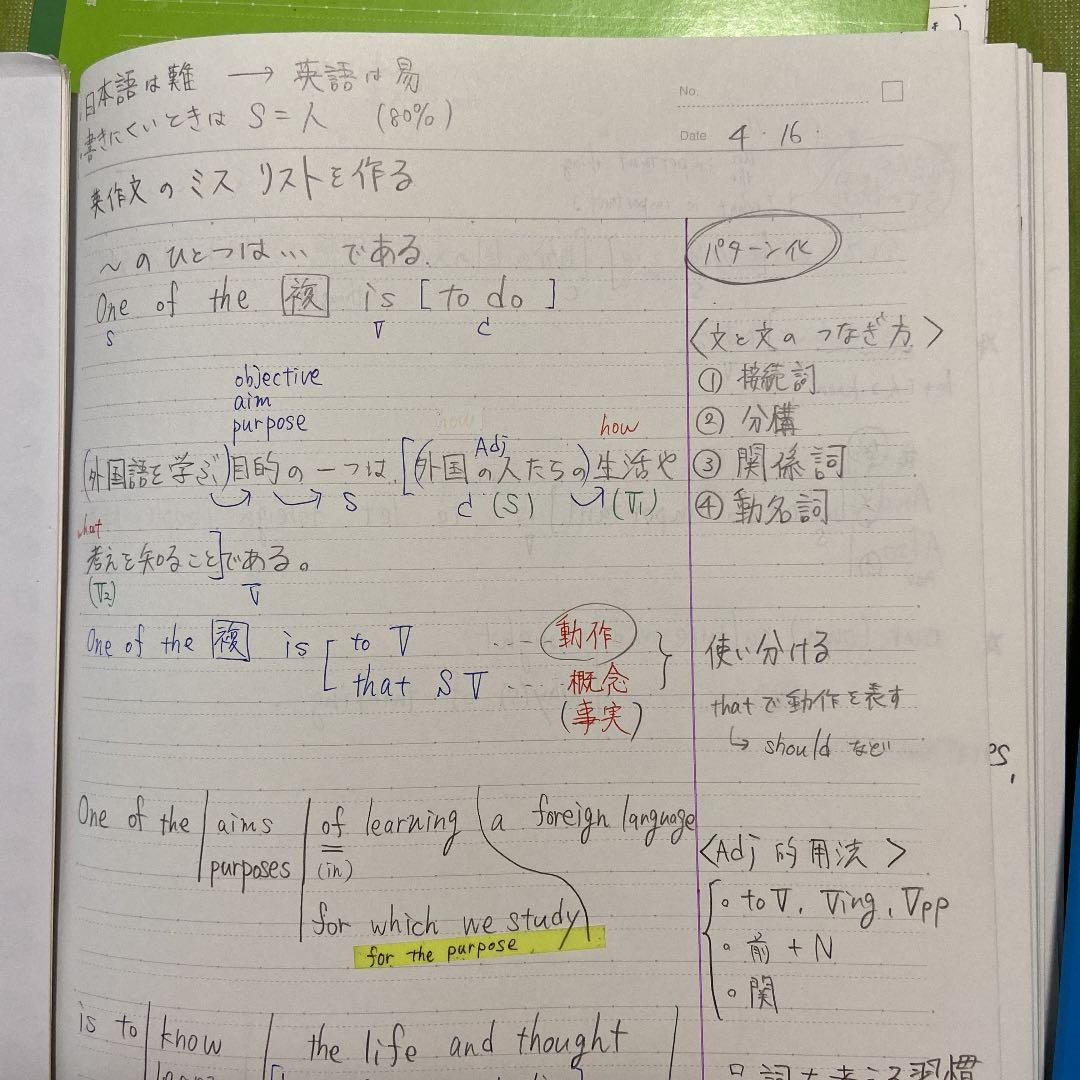 日本語は難 → 英語は易
書きにくいときは S = 人 (80%)
No.
Date 4・16・
英作文のミス リストを作る
〜のひとつは… である.
One of the 複 is [to do]
S V C
objective
aim
purpose
(外国語を学ぶ)目的の一つは [(外国の人たちの)生活や
Adj how
S C (S) (V1)
what
考えを知ること]である。
(V2) V
One of the 複 is [ to V … 動作
that S V … 概念
(事実)
One of the aims of learning a foreign language
purposes (in)
for which we study
for the purpose
is to know the life and thought
パターン化
〈文と文のつなぎ方〉
① 接続詞
② 分構
③ 関係詞
④ 動名詞
使い分ける
thatで動作を表す
↳ should など
<Adj 的用法>
∘ to V, Ving, Vpp
∘ 前 + N
∘ 関